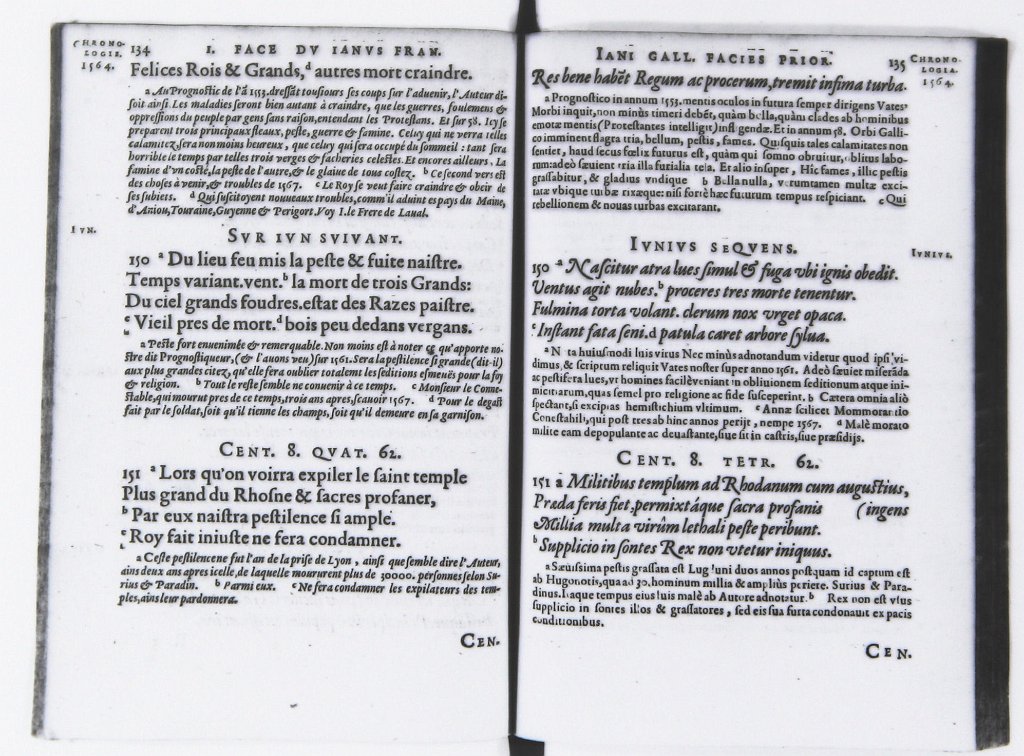 CHRONO-
LOGIE.
1564.
134 I. FACE DV IANVS FRAN.
Felices Rois & Grands,ᵈ autres mort craindre.
a Au Prognostic de l'ã 1553.dressãt tousiours ses coups sur l'aduenir, l'Auteur di-
soit ainsi. Les maladies seront bien autant à craindre, que les guerres, foulemens &
oppressions du peuple par gens sans raison,entendant les Protestans. Et sur 58. Icy se
preparent trois principaux fleaux, peste, guerre & famine. Celuy qui ne verra telles
calamitez,sera non moins heureux, que celuy qui sera occupé du sommeil : tant sera
horrible le temps par telles trois verges & facheries celestes. Et encores ailleurs. La
famine d'vn costé,la peste de l'autre,& le glaiue de tous costez. b Ce second vers est
des choses à venir,& troubles de 1567. c Le Roy se veut faire craindre & obeir de
ses subiets. d Qui suscitoyent nouueaux troubles,comm'il aduint es pays du Maine,
d'Aniou,Touraine,Guyenne & Perigort.Voy I.le Frere de Laual.
IVN.
SVR IVN SVIVANT.
150 ᵃ Du lieu feu mis la peste & fuite naistre.
Temps variant.vent.ᵇ la mort de trois Grands:
Du ciel grands foudres.estat des Razes paistre.
ᶜ Vieil pres de mort.ᵈ bois peu dedans vergans.
a Peste fort enuenimée & remerquable. Non moins est à noter ce qu'apporte no-
stre dit Prognostiqueur,(& l'auons veu) sur 1561. Sera la pestilence si grande (dit-il)
aux plus grandes citez, qu'elle fera oublier totalemt les seditions esmeuës pour la foy
& religion. b Tout le reste semble ne conuenir à ce temps. c Monsieur le Conne-
stable,qui mourut pres de ce temps,trois ans apres,scauoir 1567. d Pour le degast
fait par le soldat,soit qu'il tienne les champs,soit qu'il demeure en sa garnison.
CENT. 8. QVAT. 62.
151 ᵃ Lors qu'on voirra expiler le saint temple
Plus grand du Rhosne & sacres profaner,
ᵇ Par eux naistra pestilence si ample.
ᶜ Roy fait iniuste ne fera condamner.
a Ceste pestilence ne fut l'an de la prise de Lyon , ainsi que semble dire l'Auteur,
ains deux ans apres icelle,de laquelle moururent plus de 30000. personnes selon Su-
rius & Paradin. b Parmi eux. c Ne fera condamner les expilateurs des tem-
ples,ains leur pardonnera.
CEN.
IANI GALL. FACIES PRIOR. 135
CHRONO-
LOGIA.
1564.
Res bene habẽt Regum ac procerum,tremit infima turba.
a Prognostico in annum 1553.mentis oculos in futura semper dirigens Vates
Morbi inquit,non minùs timeri debẽt, quàm bella,quàm clades ab hominibus
emotæ mentis (Protestantes intelligit) instigendæ. Et in annum 58. Orbi Galli-
co imminent flagra tria, bellum, pestis, fames. Quisquis tales calamitates non
sentiet, haud secus fœlix futurus est, quàm qui somno obruitur, oblitus labo-
rum:adeò sæuient tria illa furialia tela. Et alio insuper, Hic fames, illic pestis
grassabitur, & gladius vndique b Bella nulla, verumtamen multæ exci-
tatæ vbique turbæ rixæque: nisi fortè hæc futurum tempus respiciant. c Qui
rebellionem & nouas turbas excitarant.
IVNIVS SEQVENS.
IVNIVS.
150 ᵃ Nascitur atra lues simul & fuga vbi ignis obedit.
Ventus agit nubes.ᵇ proceres tres morte tenentur.
Fulmina torta volant. clerum nox vrget opaca.
ᶜ Instant fata seni.d patula caret arbore sylua.
a Nota huiusmodi luis virus Nec minùs adnotandum videtur quod ipsi vi-
dimus, & scriptum reliquit Vates noster super anno 1561. Adeò sæuiet miserãda
ac pestifera lues,vt homines facilè veniant in obliuionem seditionum atque ini-
micitiarum,quas semel pro religione ac fide susceperint. b Cætera omnia aliò
spectant,si excipias hemistichium vltimum. c Annæ scilicet Mommorantio
Conestabili,qui post tres ab hinc annos perijt , nempe 1567. d Malè morato
milite eam depopulante ac deuastante,siue sit in castris,siue præsidijs.
CENT. 8. TETR. 62.
151 a Militibus templum ad Rhodanum cum augustius,
Præda feris fiet,permixtáque sacra profanis (ingens
Millia multa virûm lethali peste peribunt.
ᵇ Supplicio in sontes Rex non vtetur iniquus.
a Sæuissima pestis grassata est Lugduni duos annos postquam id captum est
ab Hugonotis,qua ad 30.hominum millia & ampliùs periere. Surius & Para-
dinus.Itaque tempus eius luis malè ab Autore adnotatur. b Rex non est vsus
supplicio in sontes illos & grassatores , sed eis sua furta condonauit ex pacis
conditionibus.
CEN.